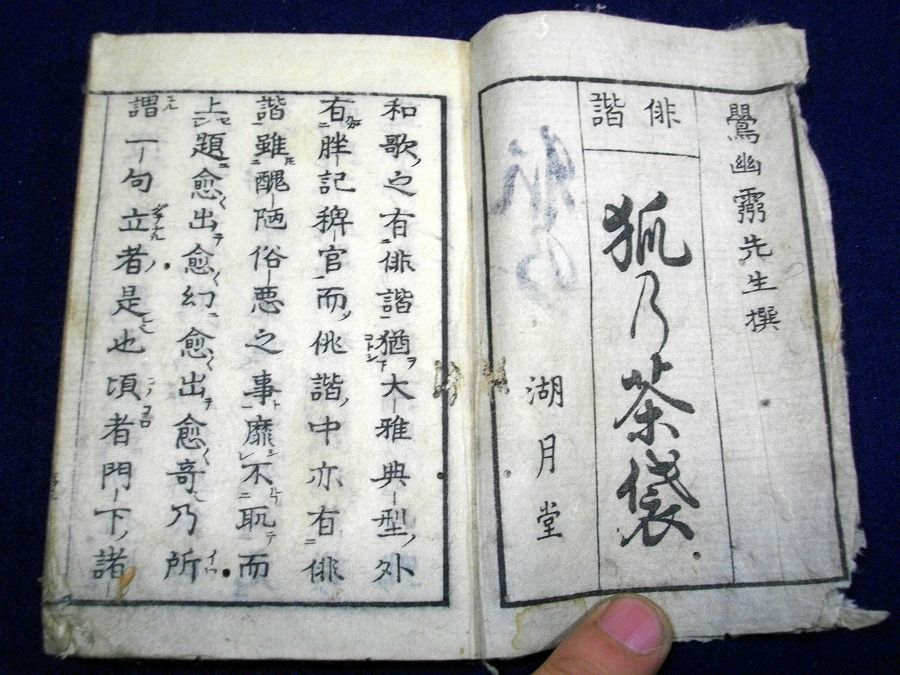 鶯幽霛先生撰
俳諧
狐乃茶袋
湖月堂
和歌之有俳諧猶大雅典型外
有脞記稗官而俳諧中亦有俳
諧雖醜陋俗悪之事靡不取而
上題愈出愈幻愈出愈奇乃所
謂一句立者是也頃者門下諸